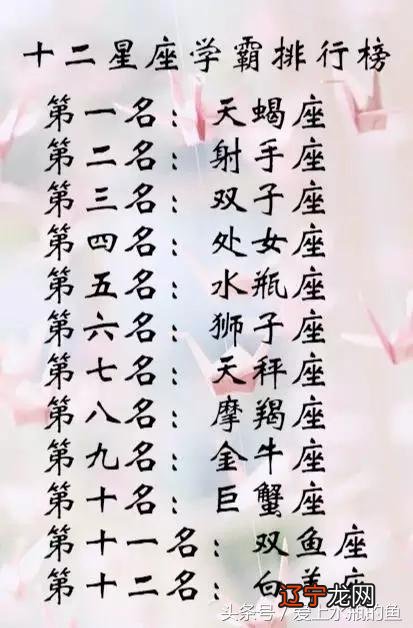 十二星座学霸排行榜
第一名：天蝎座
第二名：射手座
第三名：双子座
第四名：处女座
第五名：水瓶座
第六名：狮子座
第七名：天秤座
第八名：摩羯座
第九名：金牛座
第十名：巨蟹座
第十一名：双鱼座
第十二名：白羊座
辽宁龙网
头条号/爱上水瓶的鱼